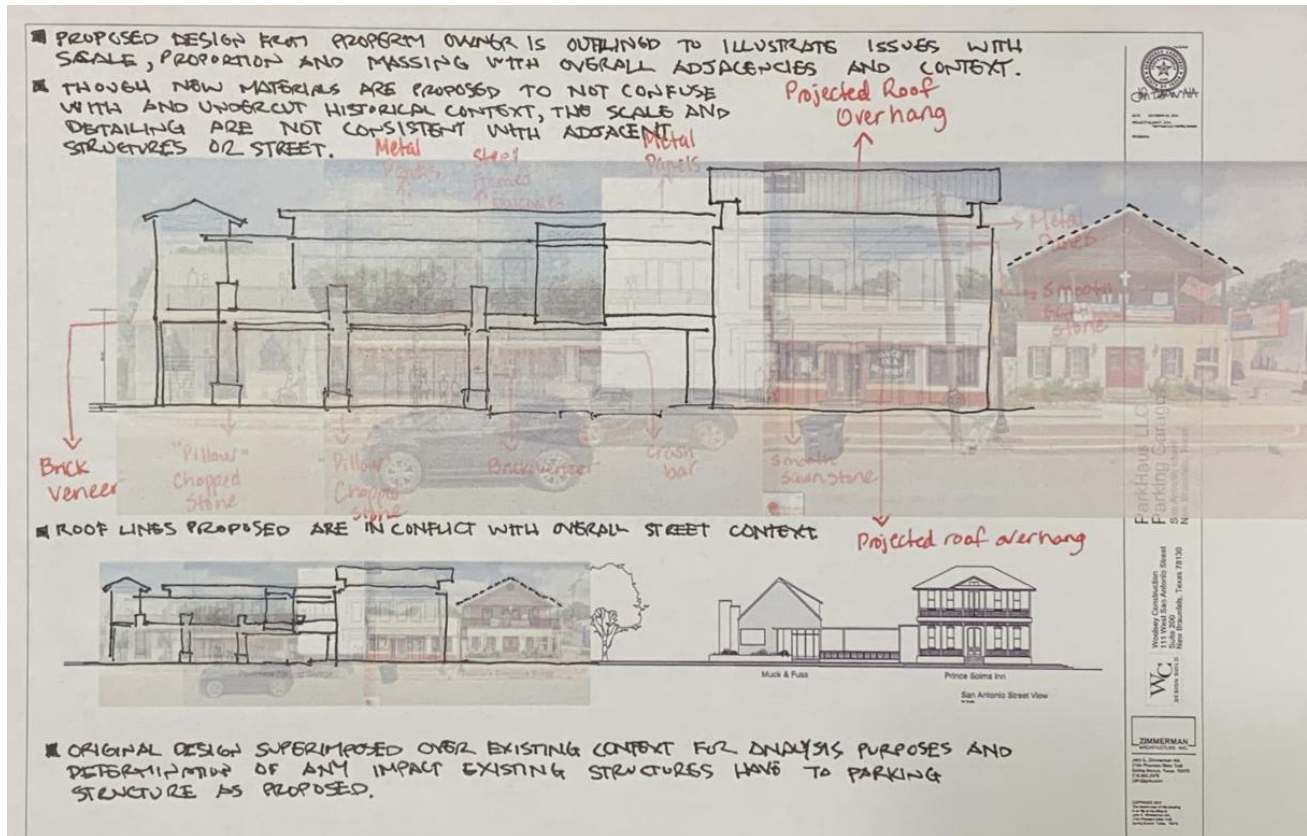 ■ PROPOSED DESIGN FROM PROPERTY OWNER IS OUTLINED TO ILLUSTRATE ISSUES WITH
SCALE, PROPORTION AND MASSING WITH OVERALL ADJACENCIES AND CONTEXT.
■ THOUGH NEW MATERIALS ARE PROPOSED TO NOT CONFUSE
WITH AND UNDERCUT HISTORICAL CONTEXT, THE SCALE AND
DETAILING ARE NOT CONSISTENT WITH ADJACENT
STRUCTURES OR STREET.
Projected Roof
Overhang
Metal
Panels
Steel
Frames
Metal
Panels
Metal
Panels
Smooth
stone
Brick
veneer
"Pillow"
Chopped
Stone
"Pillow"
Chopped
Stone
Brick veneer
Crash
bar
Smooth
stone
■ ROOF LINES PROPOSED ARE IN CONFLICT WITH OVERALL STREET CONTEXT
Projected roof overhang
Muck & Fuss
Prince Solms Inn
San Antonio Street View
■ ORIGINAL DESIGN SUPERIMPOSED OVER EXISTING CONTEXT FOR ANALYSIS PURPOSES AND
DETERMINATION OF ANY IMPACT EXISTING STRUCTURES HAVE TO PARKING
STRUCTURE AS PROPOSED.
ParkHaus LLC
Parking Garage
San Antonio Street
New Braunfels, Texas
Woolsey Construction
111 West San Antonio Street
Suite 200
New Braunfels, Texas 78130
WC
DESIGN BUILD
ZIMMERMAN
ARCHITECTURE INC.